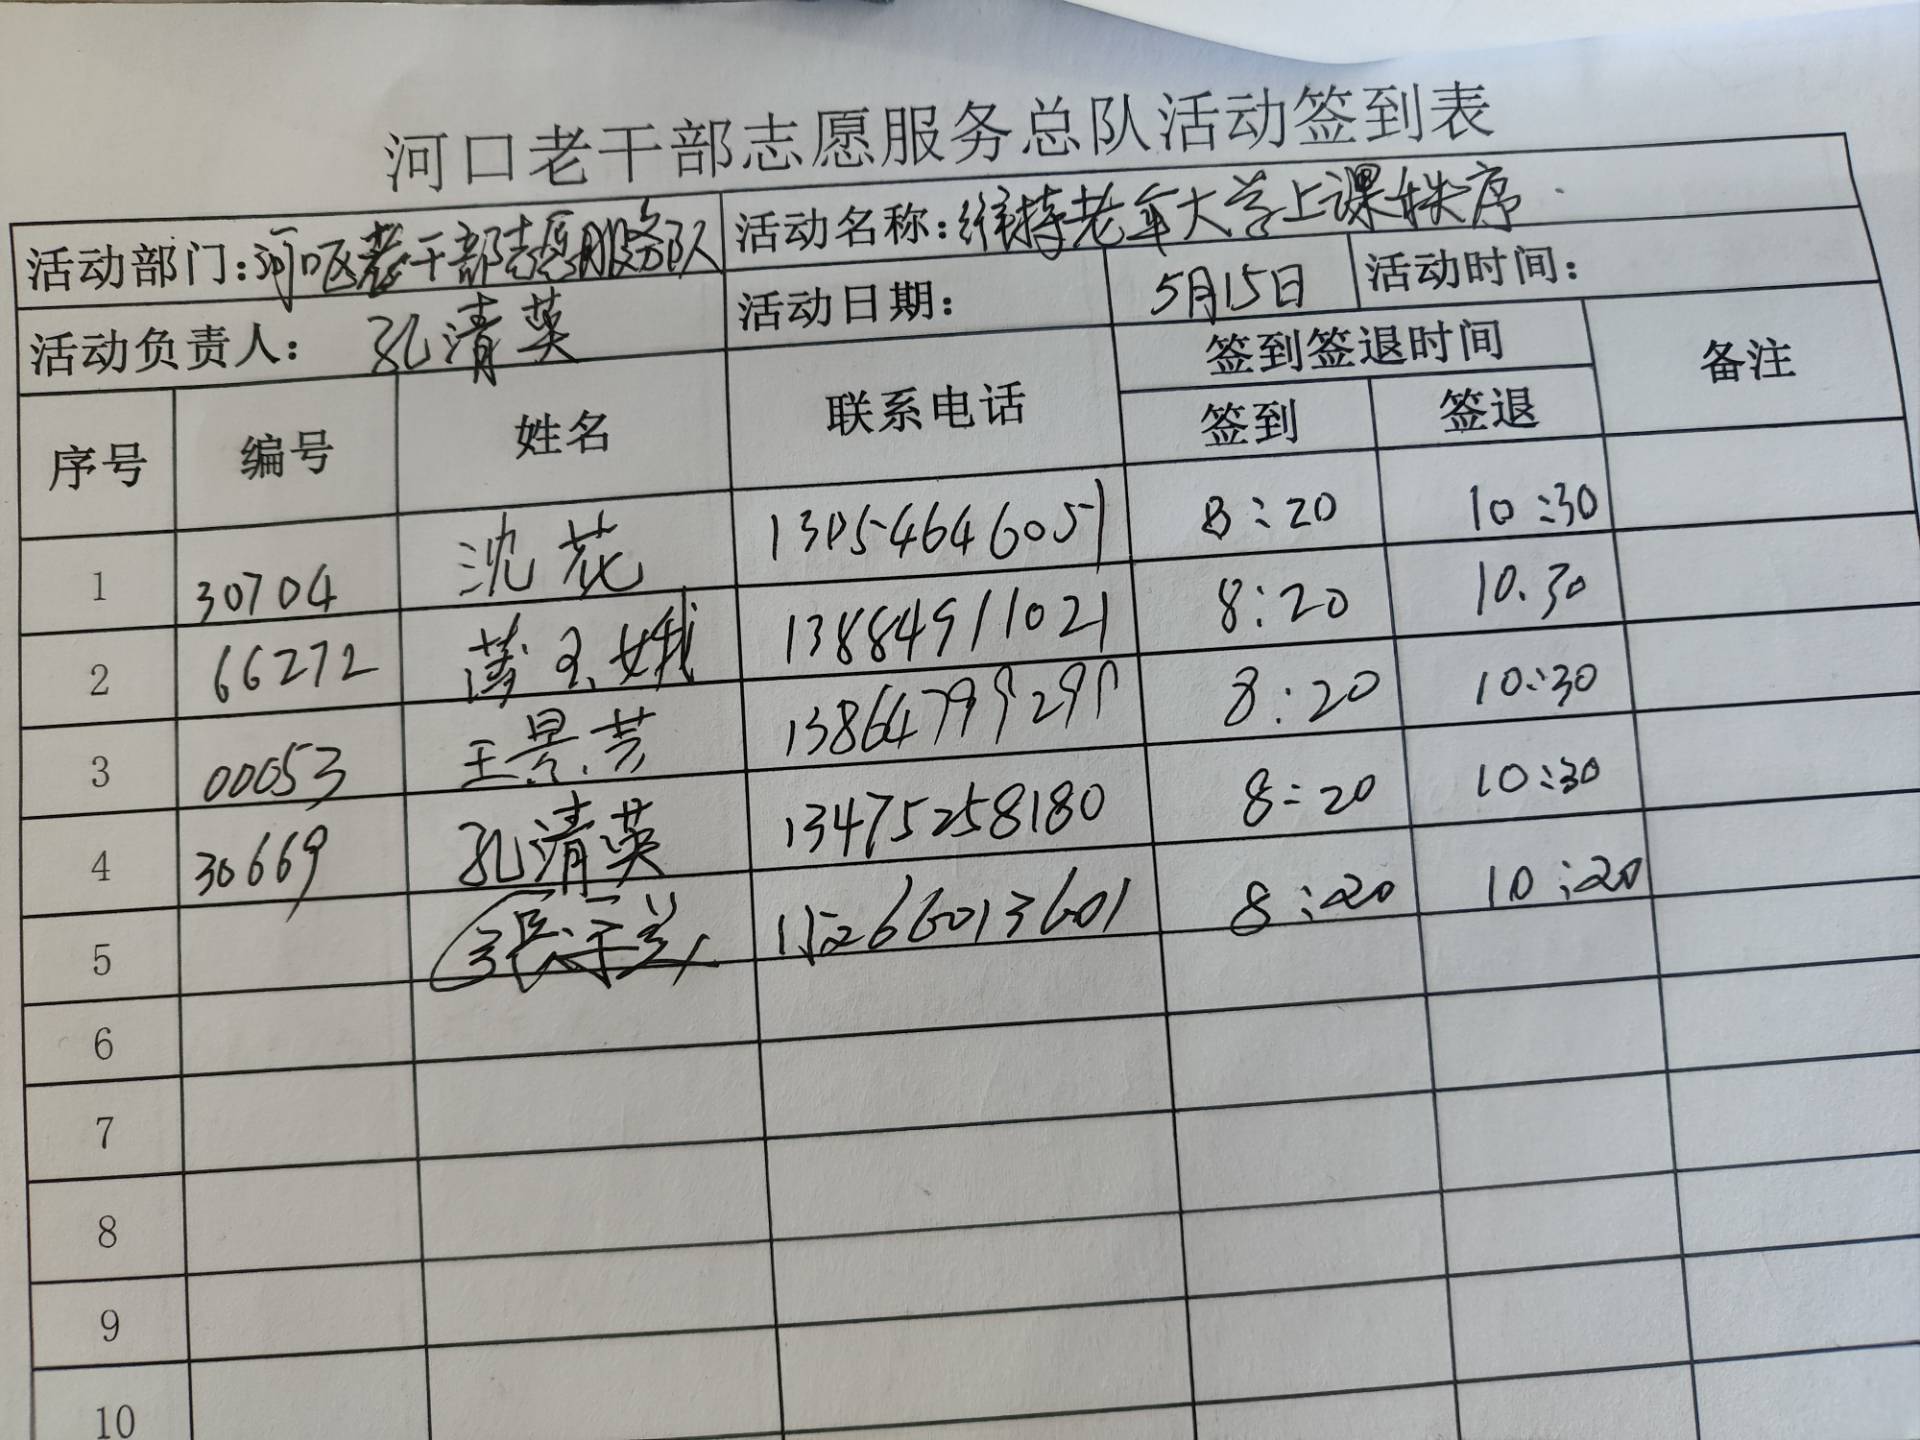 河口老干部志愿服务总队活动签到表
活动部门：河口区老干部志愿服务队 活动名称：维持老年大学上课秩序
活动负责人： 孔清英 活动日期： 5月15日 活动时间：
序号 编号 姓名 联系电话 签到签退时间 备注
签到 签退
1 30704 沈花 13054646051 8:20 10:30
2 66272 娥 13884911021 8:20 10.30
3 00053 王景芸 8:20 10:30
4 30669 孔清英 13475258180 8:20 10:30
5 张 兰 15266013601 8:20 10:20
6
7
8
9
10